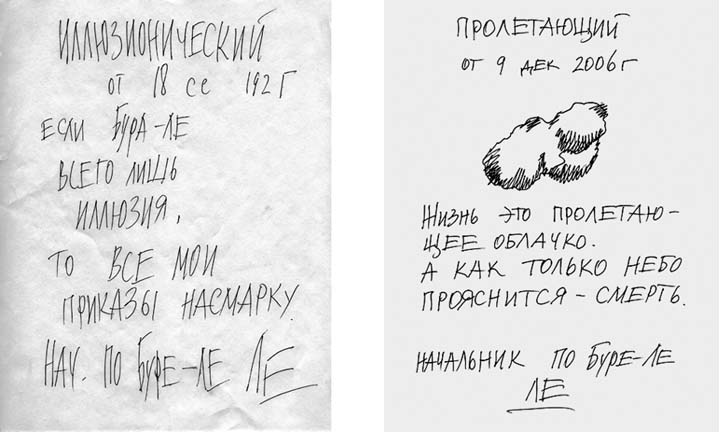 ИЛЛЮЗИОНИЧЕСКИЙ
от 18 се 192 Г
ЕСЛИ БУРА-ЛЕ
ВСЕГО ЛИШЬ
ИЛЛЮЗИЯ,
ТО ВСЕ МОИ
ПРИКАЗЫ НАСМАРКУ.
НАЧ. ПО БУРЕ-ЛЕ ЛЕ
ПРОЛЕТАЮЩИЙ
от 9 дек 2006 г
ЖИЗНЬ ЭТО ПРОЛЕТАЮ-
ЩЕЕ ОБЛАЧКО.
А КАК ТОЛЬКО НЕБО
ПРОЯСНИТСЯ - СМЕРТЬ.
НАЧАЛЬНИК ПО БУРЕ-ЛЕ
ЛЕ